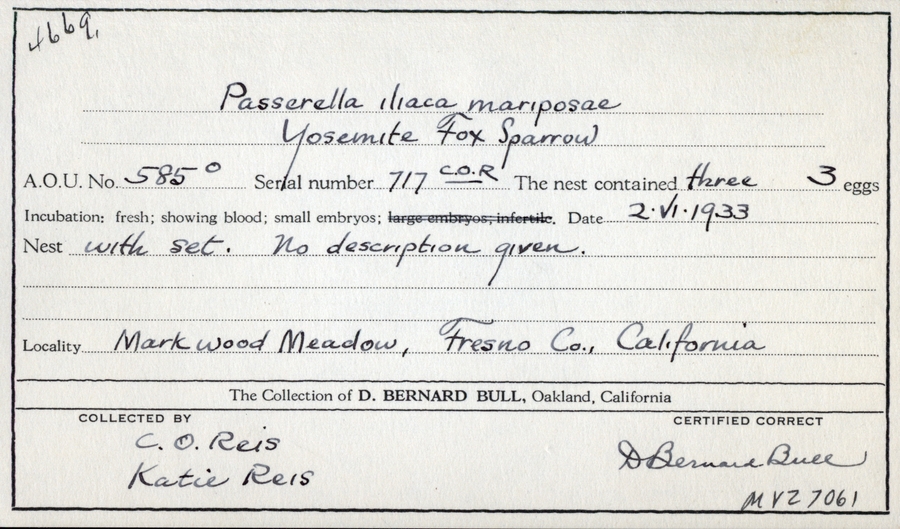 4669.
Passerella iliaca mariposae
Yosemite Fox Sparrow
A.O.U. No. 585° Serial number 717 C.O.R The nest contained three 3 eggs
Incubation: fresh; showing blood; small embryos; large embryos; infertile. Date 2·VI·1933
Nest with set. No description given.
Locality Markwood Meadow, Fresno Co., California
The Collection of D. BERNARD BULL, Oakland, California
COLLECTED BY CERTIFIED CORRECT
C. O. Reis
Katie Reis
D Bernard Bull
MVZ 7061